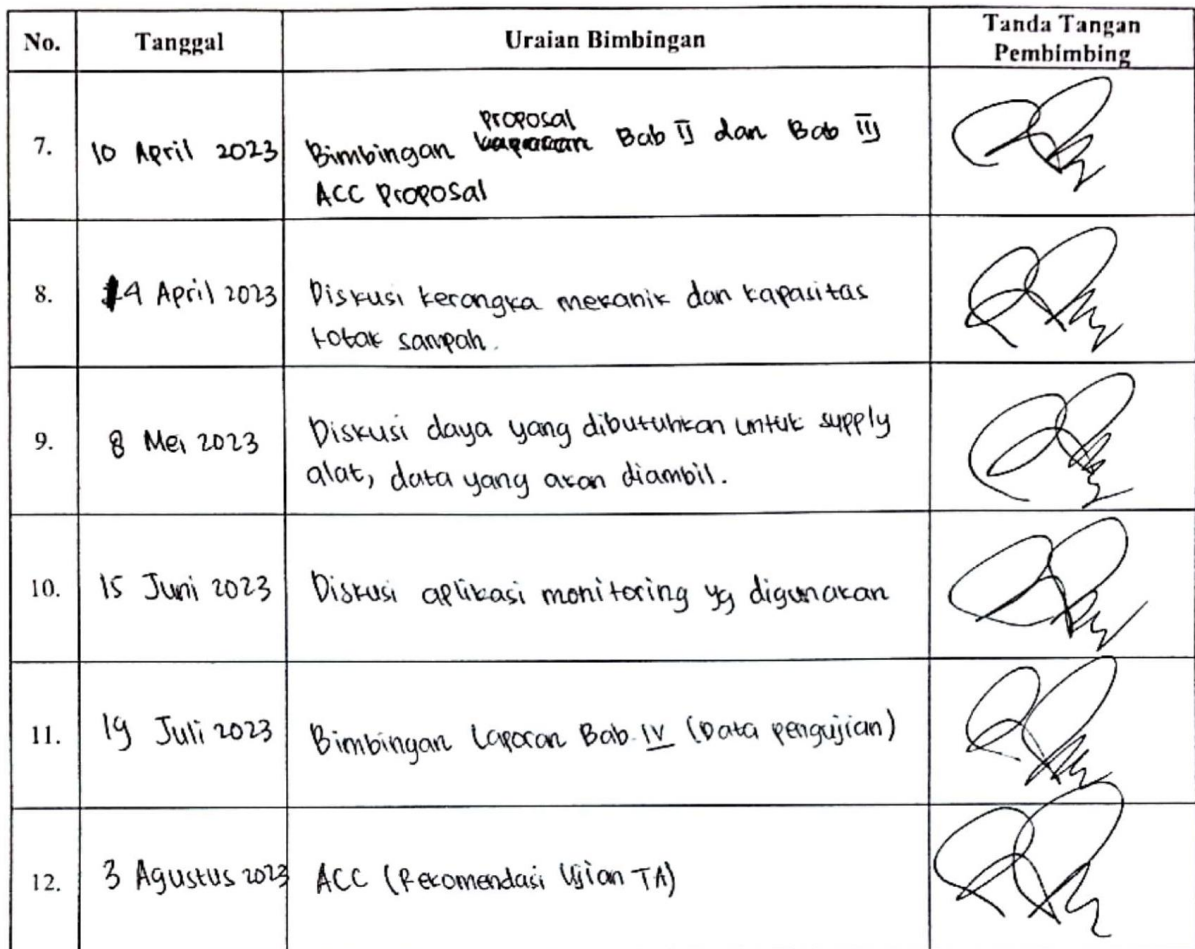 No. Tanggal Uraian Bimbingan Tanda Tangan
Pembimbing
proposal
7. 10 April 2023 Bimbingan Bab II dan Bab III
ACC Proposal
8. 14 April 2023 Diskusi kerangka mekanik dan kapasitas
kotak sampah.
9. 8 Mei 2023 Diskusi daya yang dibutuhkan untuk supply
alat, data yang akan diambil.
10. 15 Juni 2023 Diskusi aplikasi monitoring yg digunakan
11. 19 Juli 2023 Bimbingan Laporan Bab IV (Data pengujian)
12. 3 Agustus 2023 ACC (Rekomendasi Ujian TA)